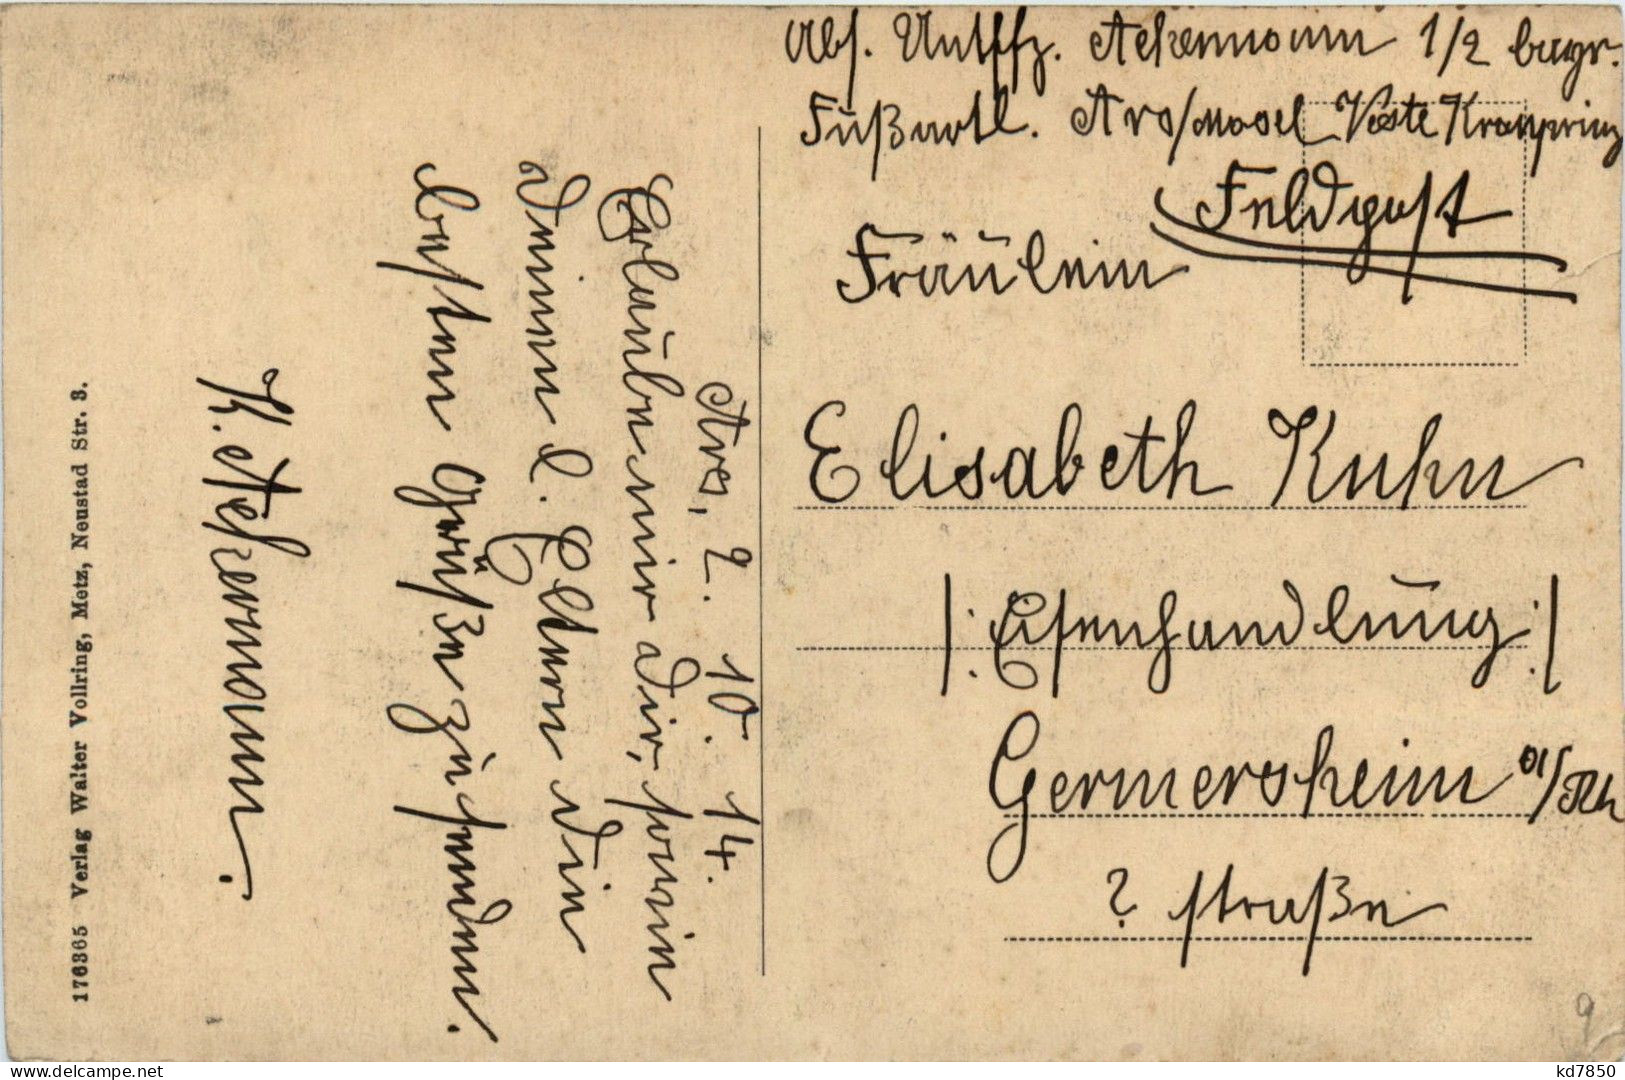 Abs. Untffz. Ackermann 1/2 bayr.
Fußartl. Ars/Mosel Veste Kronprinz
Feldpost
Fräulein
Elisabeth Kuhn
|: Eisenhandlung :|
Germersheim a/Rh
? straße
Ars, 2. 10. 14.
Erlaube mir Dir, sowie
Deinen l. Eltern die
besten Grüße zu senden.
K. Ackermann.
176365 Verlag Walter Vollring, Metz, Neustad Str. 3.
9
www.delcampe.net
kd7850